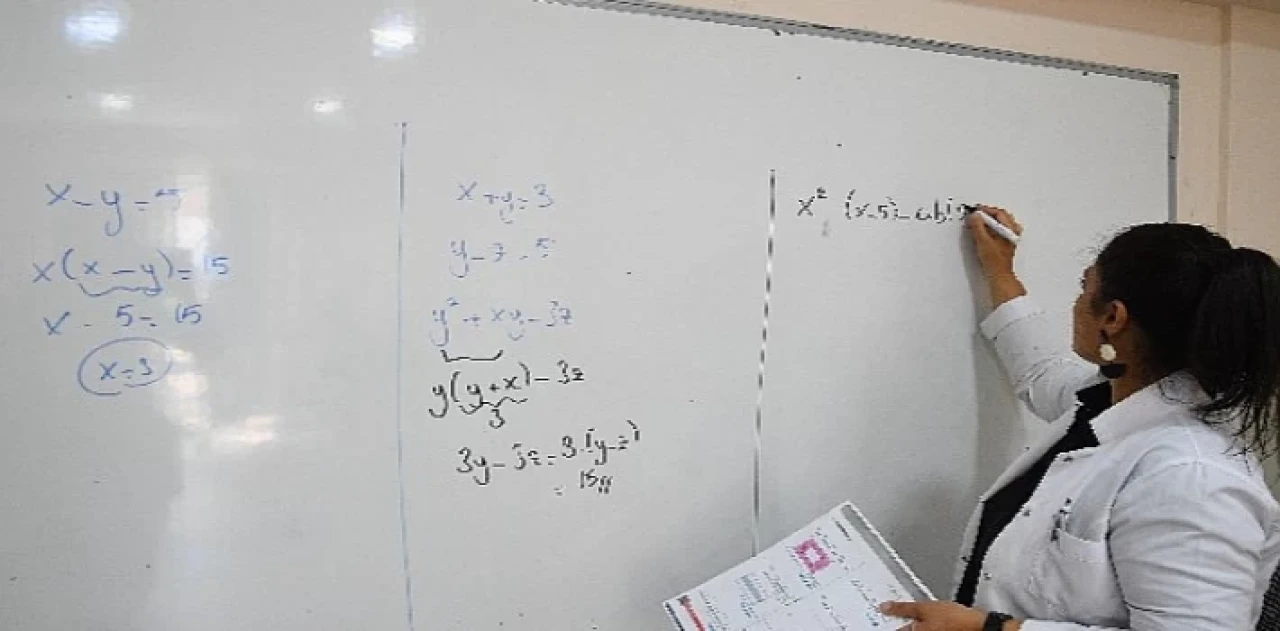 x - y = 5
x(x - y) = 15
x · 5 = 15
x = 3
x + y = 3
y - z = 5
y² + xy - 3z
y(y + x) - 3z
3
3y - 3z = 3·(y - z)
= 15
x² (x-5)